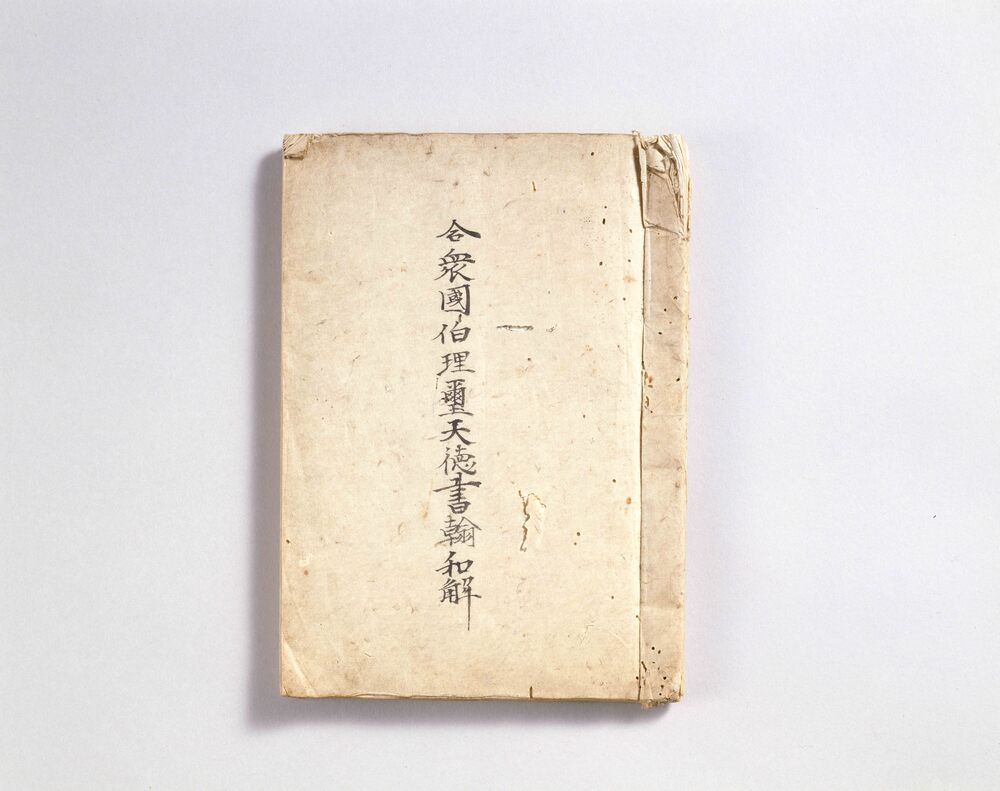 合衆國伯理璽天徳書翰和解